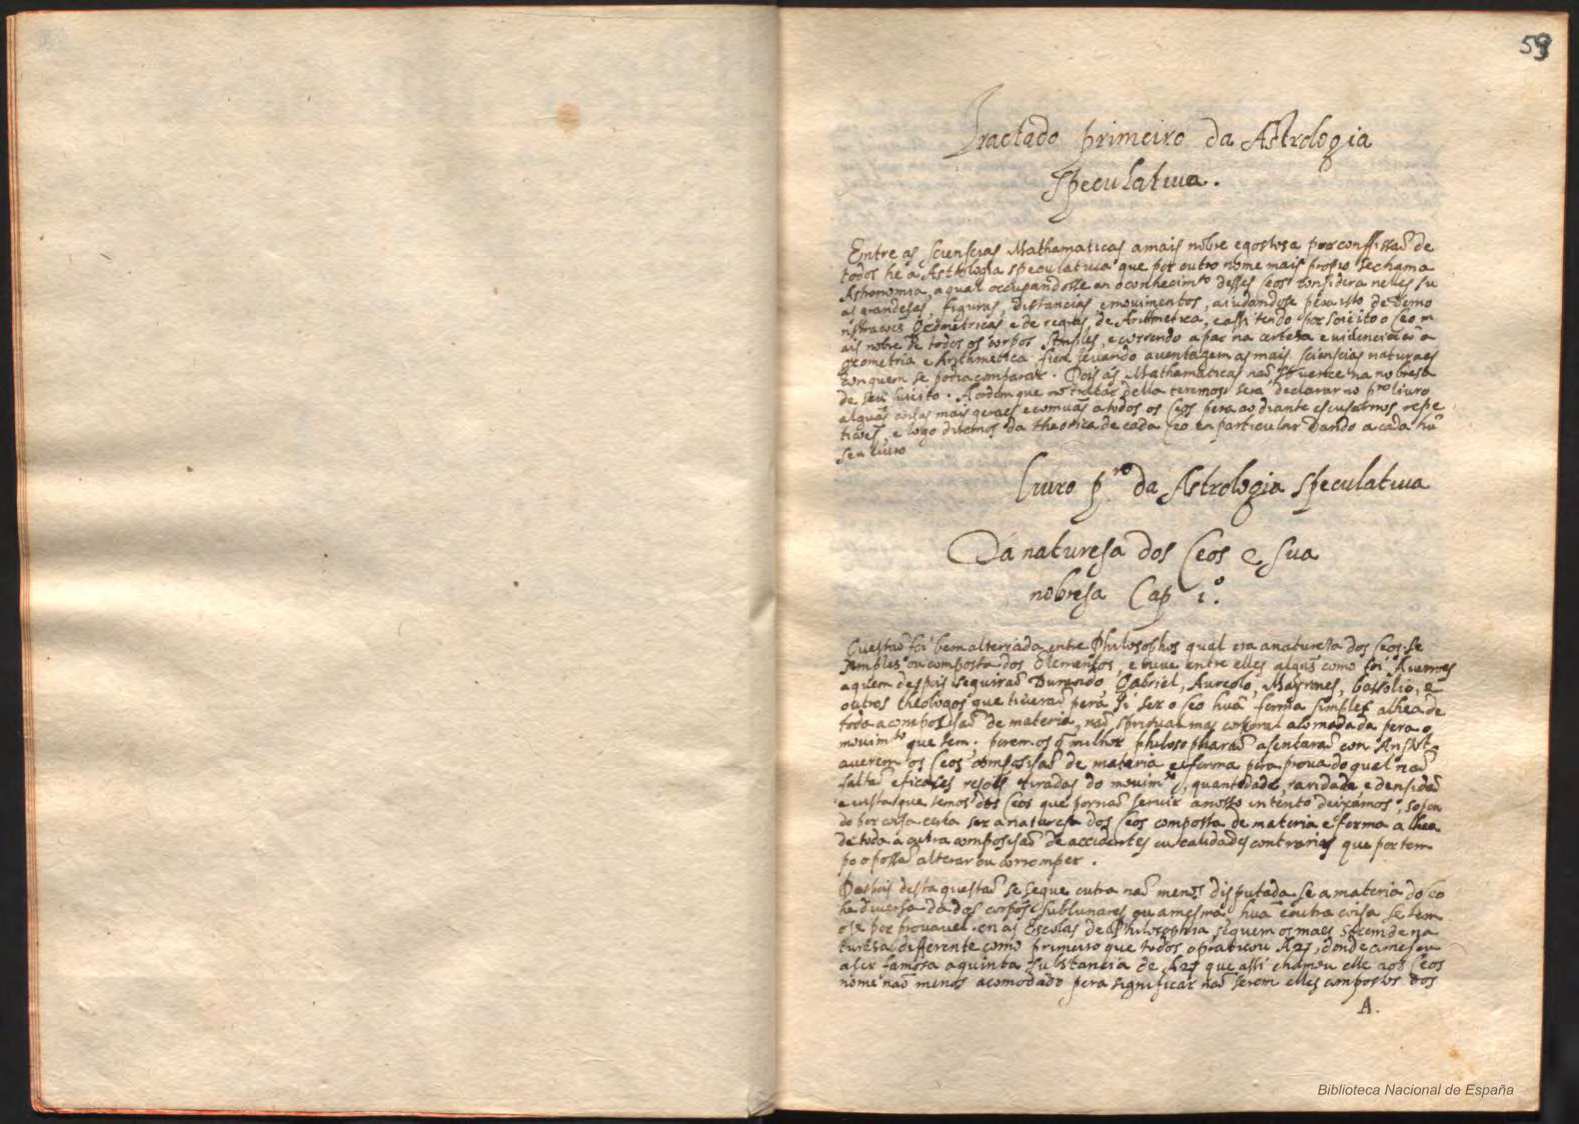 59
Tractado primeiro da Astrologia
speculatiua.
Entre as sciensias Mathematicas a mais nobre e gostosa por confissaõ de
todos he a Astrologia speculatiua que por outro nome mais proprio se chama
Astronomia, a qual occupandosse en o conhecimto desses Ceos considera nelles su
as grandesas, figuras, distancias, e mouimentos, aiudandose pera isto de demo
nstracois Geometricas e de regras de Arithmetica, e assi tendo por soieito o Ceo m
ais nobre de todos os corpos simples, e correndo a par na certesa e euidencia cõ a
geometria e Arithmetica fica leuando auentagem as mais sciensias naturaes
con quem se podia comparar. Pois as Mathematicas naõ so uence na nobresa
de seu suieito. A ordem que no tratar della teremos sera declarar no pro liuro
alguãs coisas mais geraes e comuãs a todos os Ceos pera ao diante escusarmos repe
ticoẽs, e logo diremos da theorica de cada Ceo en particular dando a cada hũ
seu liuro
Liuro pro da Astrologia speculatiua
Da naturesa dos Ceos e sua
nobresa Cap 1º.
Questaõ foi bem altercada entre Philosophos qual era a naturesa dos Ceos se
simples ou composta dos Elementos, e houue entre elles algũs como foi Auerroes
a quem despois seguiraõ Durando, Gabriel, Aureolo, Mayrones, Bassolio, e
outros theologos que tiueraõ pera si ser o Ceo huã forma simples alhea de
toda a composisaõ de materia, naõ spiritual mas corporal acomadada pera o
mouimto que tem. porem os q̃ milhor philosopharaõ asentaraõ con Arist.
auerem os Ceos composisaõ de materia e forma pera proua do qual naõ
faltaõ eficases resoẽs tiradas do mouimto, quantidade, raridade e densidaõ
e uista que temos dos Ceos que por naõ seruir a nosso intento deixamos, supon
do por coisa certa ser a naturesa dos Ceos composta de materia e forma alhea
de toda a outra composisaõ de accidentes ou calidades contrarias que por tem
po o possaõ alterar ou corromper.
Despois desta questaõ se segue outra naõ menos disputada se a materia do Ceo
he diuersa da dos corpos sublunares ou a mesma huã e outra coisa se tem
oje por prouauel en as Escolas de Philosophia, seguem os mais serem de na
turesa differente como primeiro que todos o praticou Ar, donde comesou
a ser famosa a quinta substancia de Ar que assi chamou elle aos Ceos
nome naõ menos acomodado pera significar naõ serem elles compostos dos
A.
Biblioteca Nacional de España